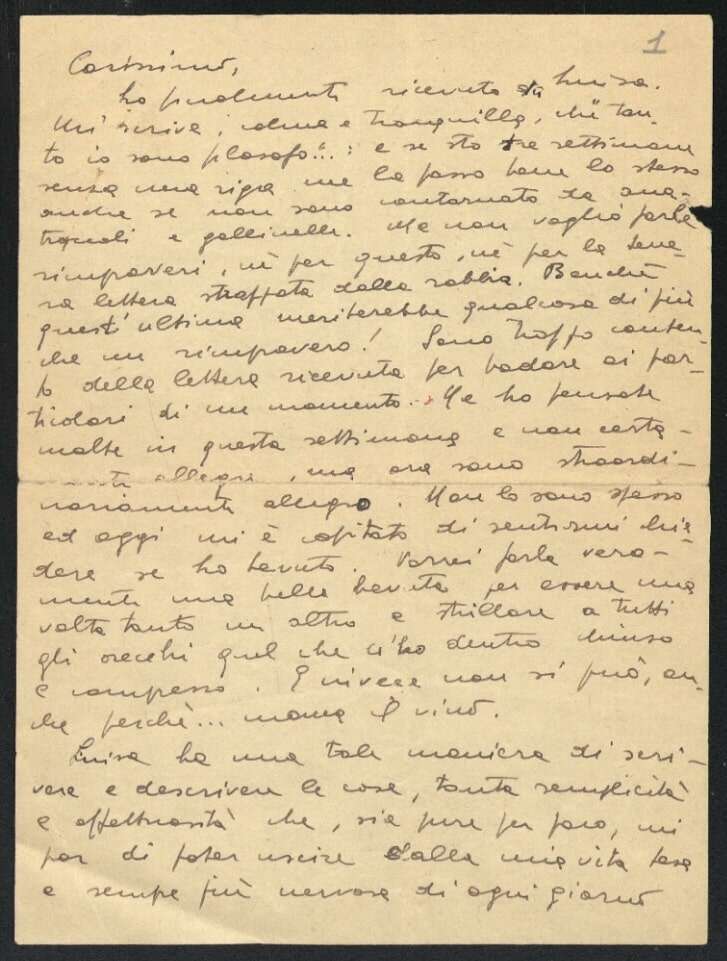 1
Carissimo,
ho finalmente ricevuto da Luisa.
Mi scrive, calma e tranquilla, che "tan-
to io sono filosofo"...: e se sto tre settimane
senza una riga me la passo bene lo stesso
anche se non sono contornato da ana-
troccoli e gallinelle. Ma non voglio farle
rimproveri, nè per questo, nè per la
ra lettera strappata dalla rabbia. Benchè
quest'ultima meriterebbe qualcosa di più
che un rimprovero! Sono troppo conten-
to della lettera ricevuta per badare ai par-
ticolari di un momento. Ne ho pensate
molte in questa settimana e non certa-
mente allegre, ma ora sono straordi-
nariamente allegro. Non lo sono spesso
ed oggi mi è capitato di sentirmi chie-
dere se ho bevuto. Vorrei farla vera-
mente una bella bevuta per essere una
volta tanto un altro e strillare a tutti
gli orecchi quel che ci ho dentro chiuso
e compresso. E invece non si può, an-
che perchè... manca il vino.
Luisa ha una tale maniera di scri-
vere e descrivere le cose, tanta semplicità
e affettuosità che, sia pure per poco, mi
par di poter uscire dalla mia vita tesa
e sempre più nervosa di ogni giorno